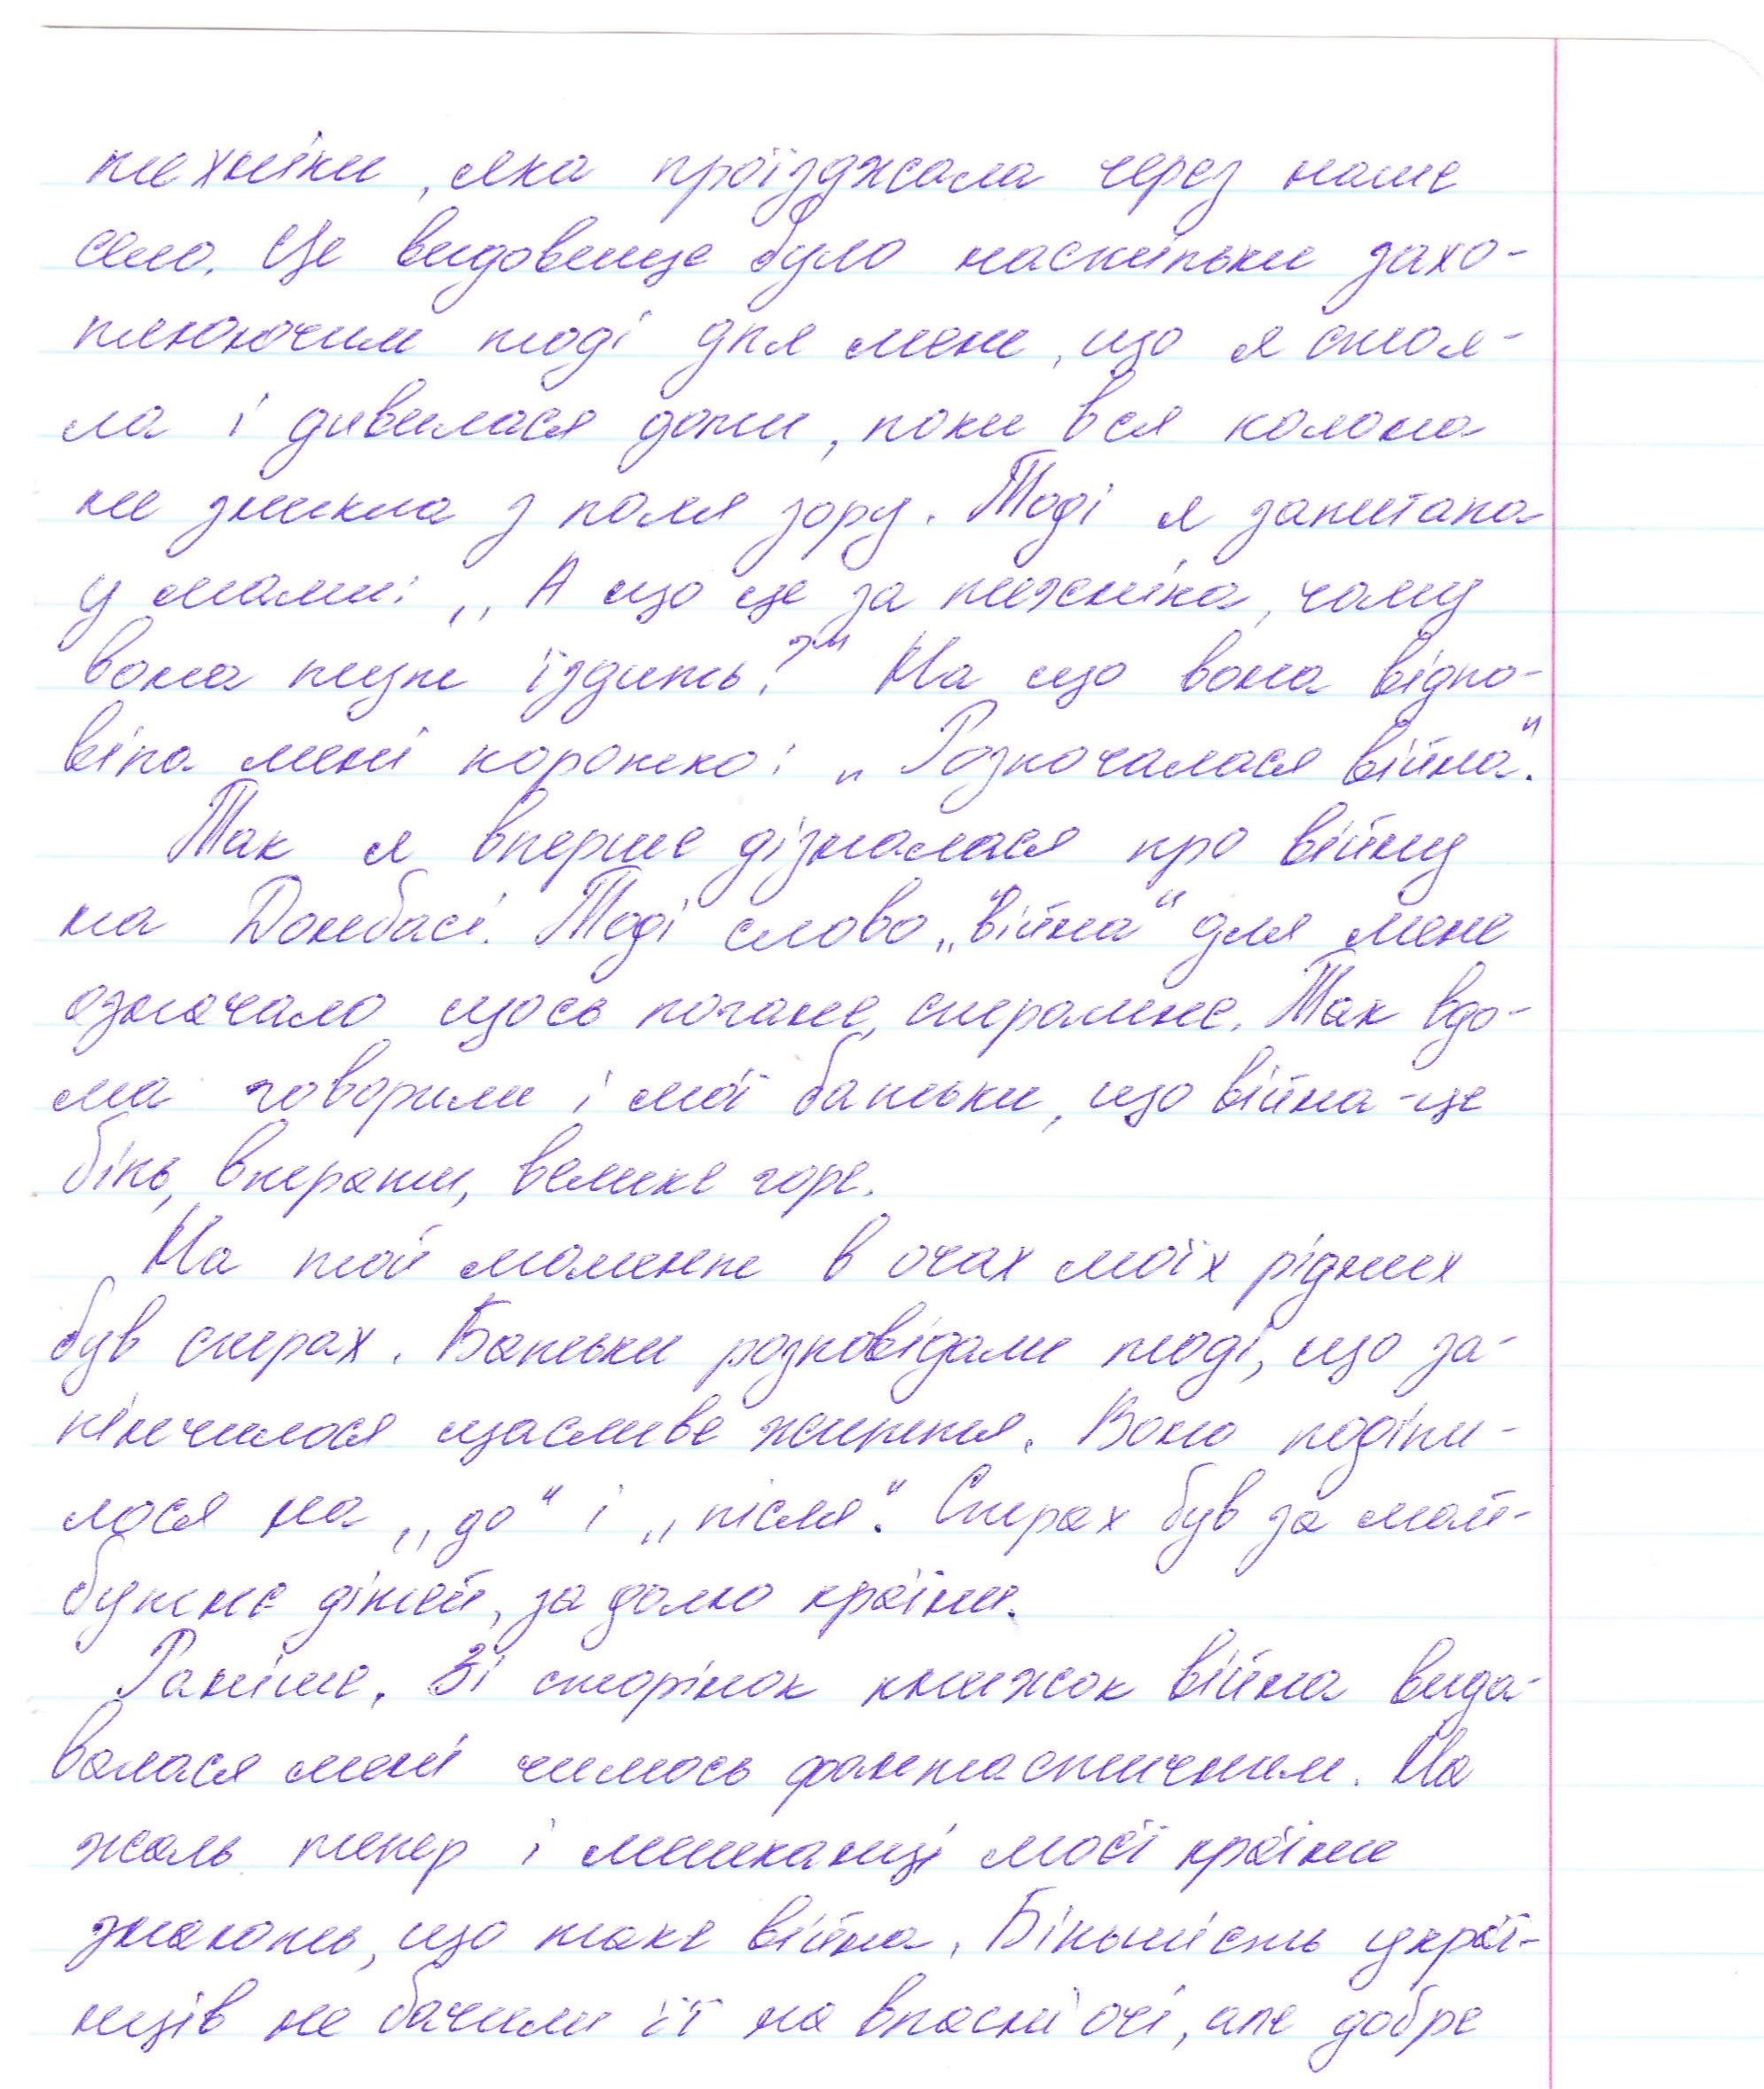 техніки, яка проїзджала через наше
село. Це видовище було наскільки захо-
плюючим тоді для мене, що я стоя-
ла і дивилася доти, поки вся колона
не зникла з поля зору. Тоді я запитала
у мами: „А що це за техніка, чому
вона тут їздить?" На що вона відпо-
віла мені коротко: „Розпочалася війна".
Так я вперше дізналася про війну
на Донбасі. Тоді слово „війна" для мене
означало щось погане, страшне. Так вдо-
ма говорили і мої батьки, що війна - це
біль, втрати, велике горе.
На той момент в очах моїх рідних
був страх. Батьки розповідали тоді, що за-
кінчилося щасливе життя. Воно поділи-
лося на „до" і „після". Страх був за май-
бутнє дітей, за долю країни.
Раніше. Зі сторінок книжок війна вида-
валася мені чимось фантастичним. На
жаль тепер і мешканці моєї країни
знають, що таке війна. Більшість украї-
нців не бачили її на власні очі, але добре